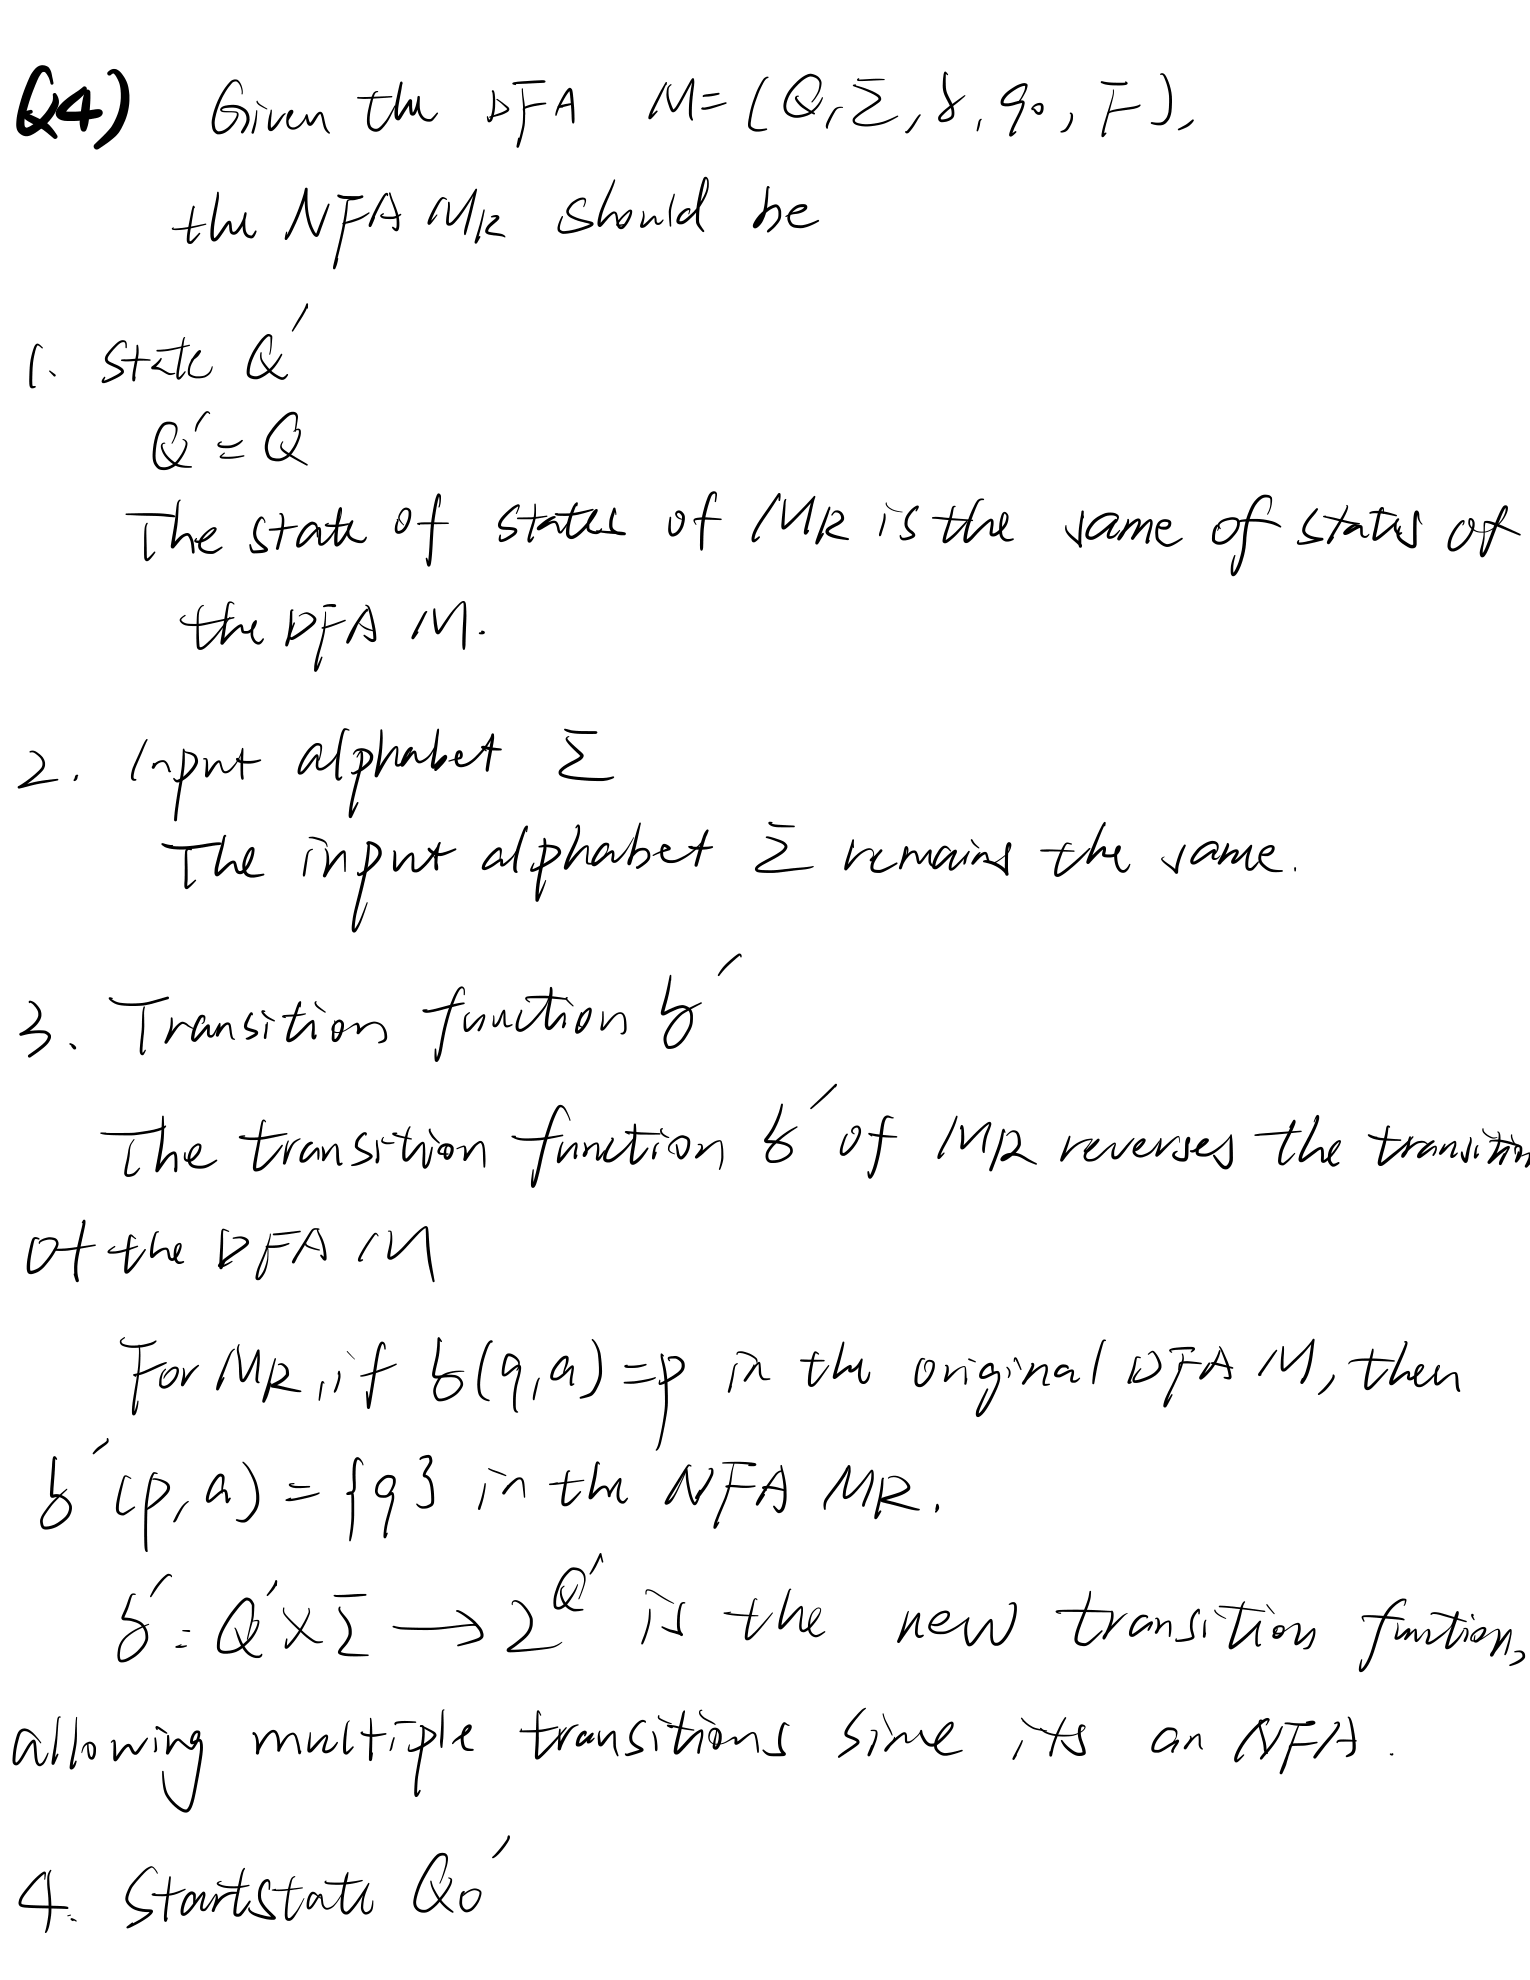 Q4) Given the DFA M=(Q,Σ,δ,q₀,F),
the NFA MR should be
1. State Q'
Q'=Q
The state of states of MR is the same of states of
the DFA M.
2. Input alphabet Σ
The input alphabet Σ remains the same.
3. Transition function δ'
The transition function δ' of MR reverses the transition
of the DFA M
For MR, if δ(q,a)=p in the original DFA M, then
δ'(p,a)={q} in the NFA MR.
δ': Q'×Σ→2^Q' is the new transition function,
allowing multiple transitions since its an NFA.
4. Start state Q₀'